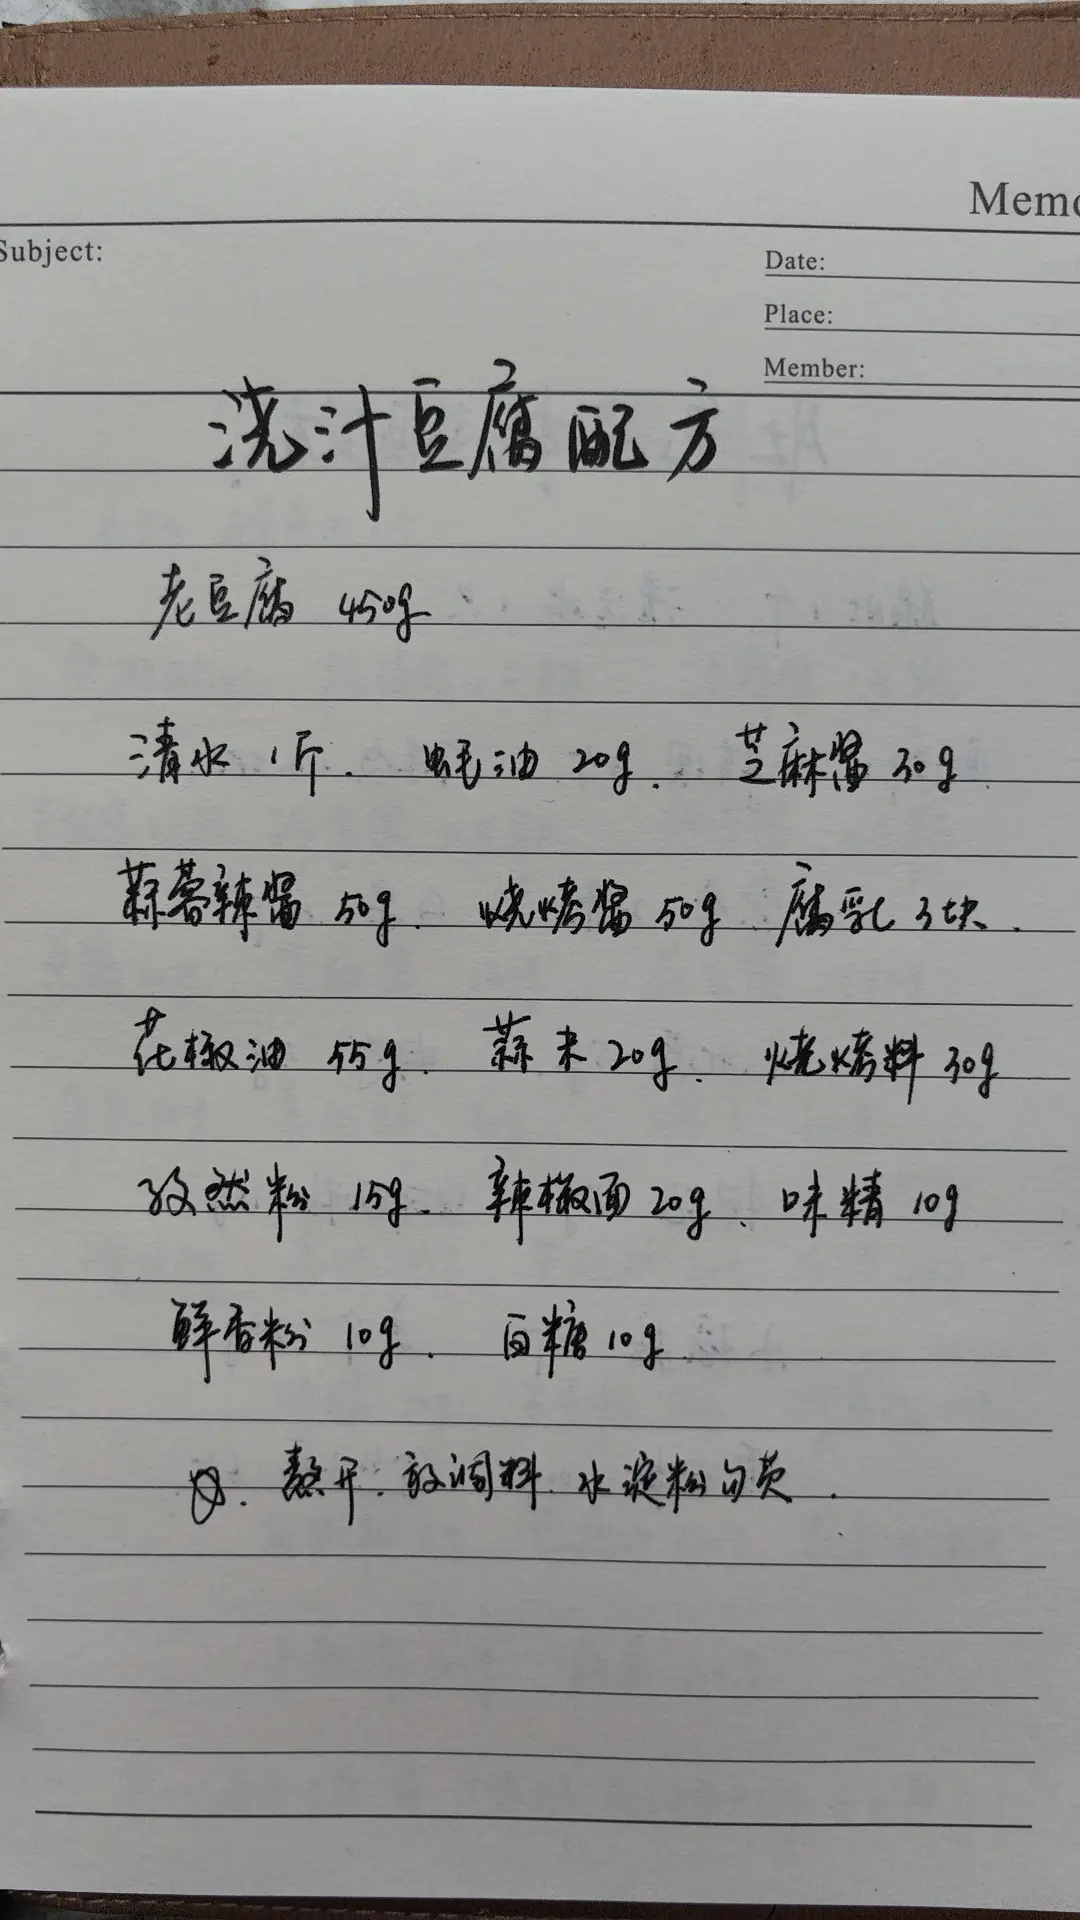 Memo
Subject:
Date:
Place:
Member:
浇汁豆腐配方
老豆腐 450g
清水 1斤. 蚝油 20g. 芝麻酱 30g
蒜蓉辣酱 50g. 烧烤酱 50g 腐乳 3块.
花椒油 55g. 蒜末 20g. 烧烤料 30g
孜然粉 15g. 辣椒面 20g. 味精 10g
鲜香粉 10g. 白糖 10g
熬开. 放调料 水淀粉勾芡.